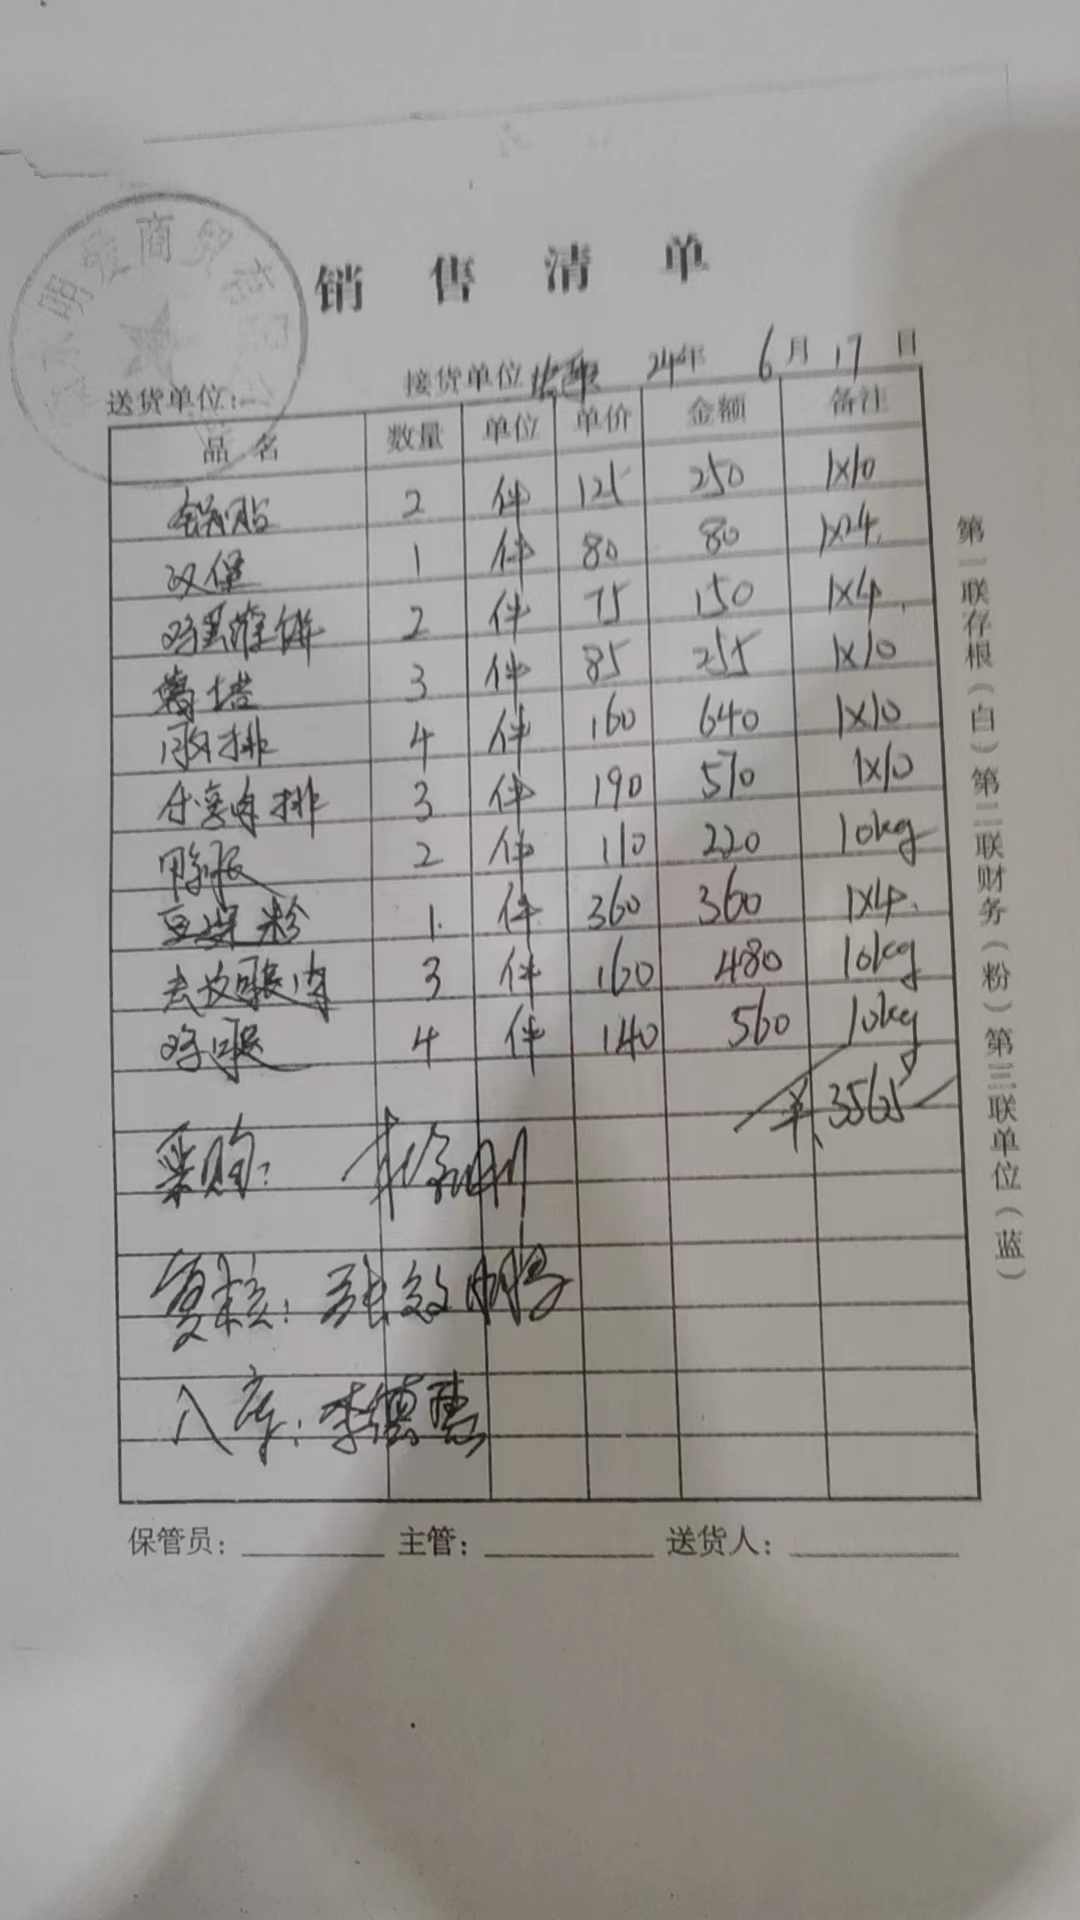 明爱商贸有限公
销售清单
送货单位: 接货单位 24年 6月17日
品名 数量 单位 单价 金额 备注
锅贴 2 件 125 250 1X10
汉堡 1 件 80 80 1X24
鸡蛋灌饼 2 件 75 150 1X4
蛋塔 3 件 85 255 1X10
排 4 件 160 640 1X10
排 3 件 190 570 1X10
鸭 2 件 110 220 10kg
粉 1 件 360 360 1X4
去皮腿肉 3 件 160 480 10kg
鸡腿 4 件 140 560 10kg
¥3565
采购:
复核: 张
入库: 李德惠
保管员: 主管: 送货人:
第一联存根(白)第二联财务(粉)第三联单位(蓝)